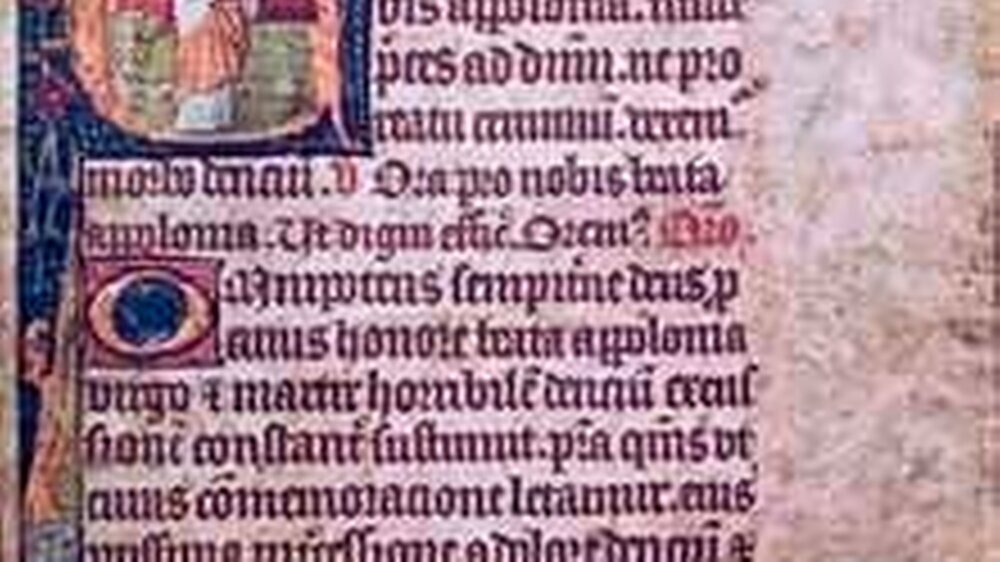 bis appolonia.
pces ad dnm. ne pro
reatu
morbo dencm. V Ora pro nobis beata
appolonia. Ut digni effic. Orem9. Oro.
Omnipotens sempitne deus, p
cuius honore beata appolonia
virgo ⁊ martir horribilē denciū excus
sionē constant sustinuit. pta qms ut
cuius cōmemoracione letamur. eius